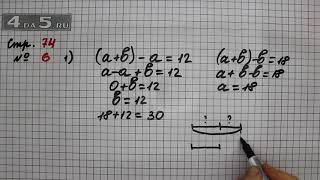 4DA5.RU
Стр. 74
№ 6 1) (a+b)-a=12
a-a+b=12
0+b=12
b=12
18+12=30
(a+b)-b=18
a+b-b=18
a=18
? ?